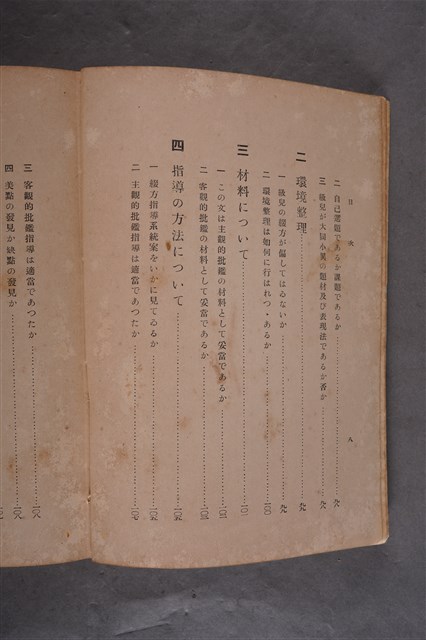 目次 八
二 自己選題であるか課題であるか
三 級兒が大同小異の題材及び表現法であるか否か
二 環境整理
一 級兒の綴方が偏してはゐないか
二 環境整理は如何に行はれつゝあるか 一〇〇
三 材料について 一〇一
一 この文は主觀的批鑑の材料として妥當であるか 一〇三
二 客觀的批鑑の材料として妥當であるか 一〇三
四 指導の方法について 一〇五
一 綴方指導系統案をいかに見てゐるか 一〇五
二 主觀的批鑑指導は適當であつたか 一〇七
三 客觀的批鑑指導は適當であつたか 一〇八
四 美點の發見か缺點の發見か 一〇八